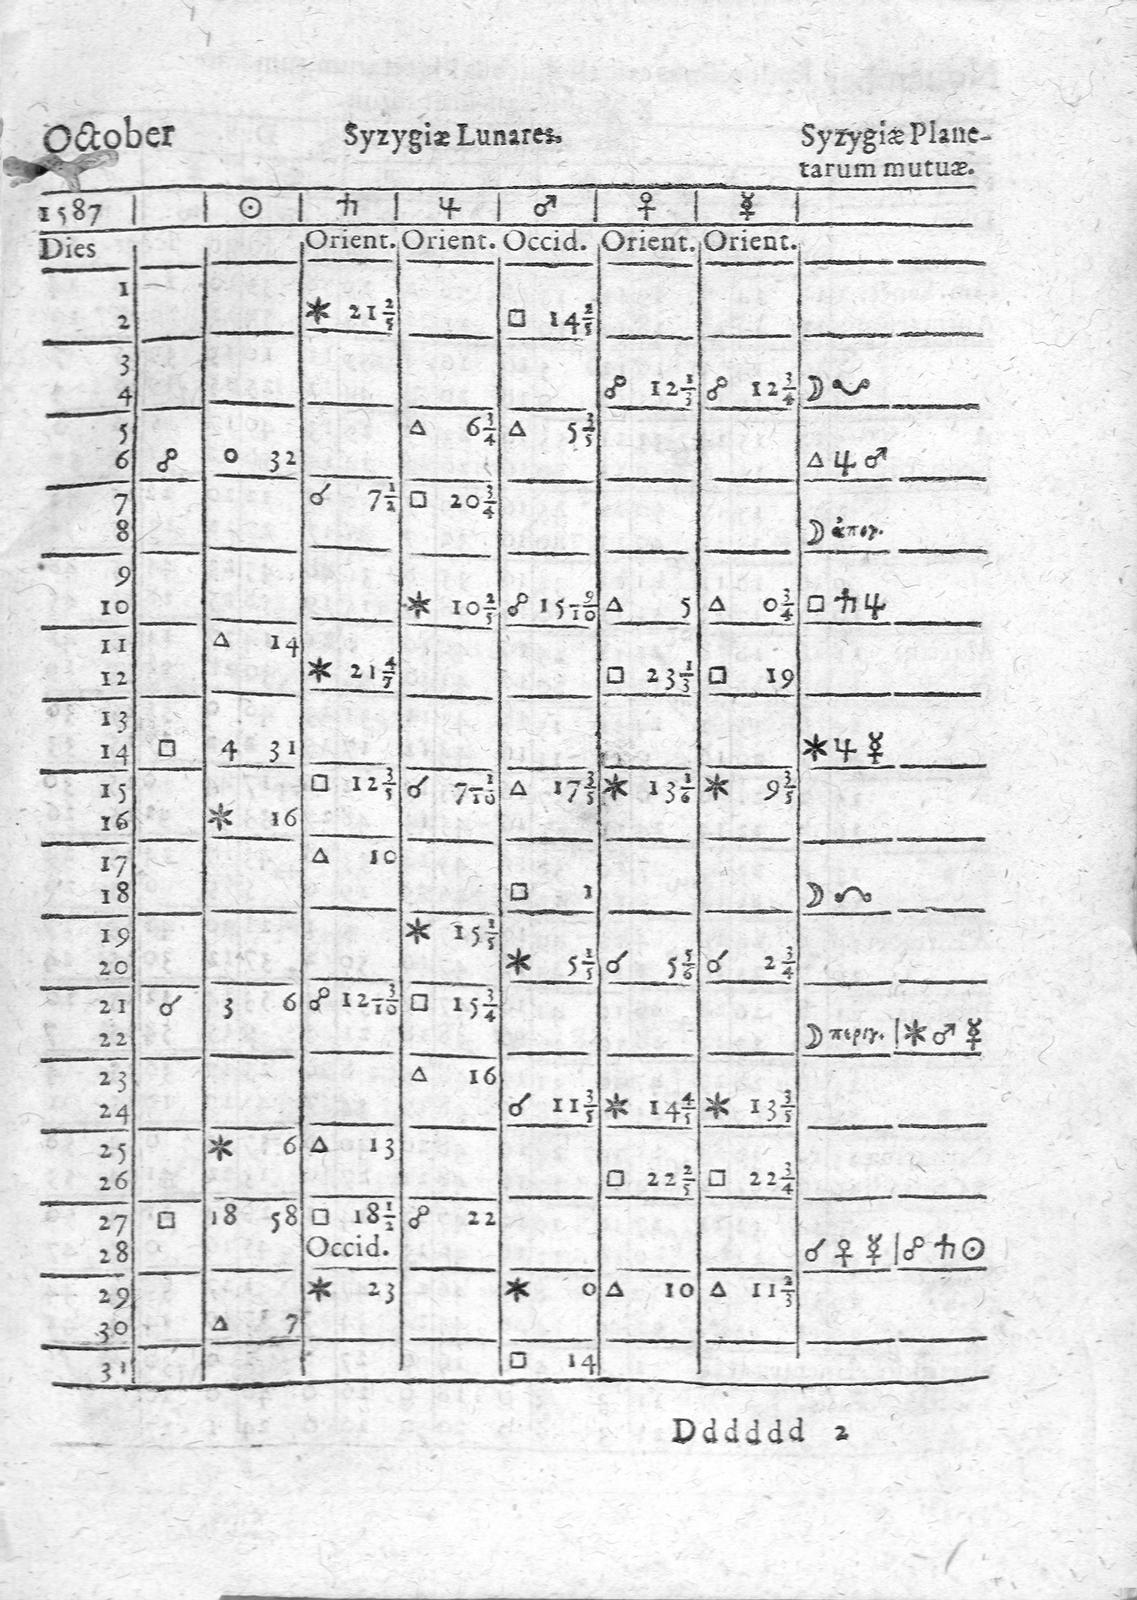 October Syzygiæ Lunares. Syzygiæ Plane-
tarum mutuæ.
1587 ☉ ♄ ♃ ♂ ♀ ☿
Dies Orient. Orient. Occid. Orient. Orient.
1
2 ⚹ 21 2/5 □ 14 2/5
3
4 ☍ 12 1/3 ☍ 12 3/4 ☽ ☋
5 △ 6 3/4 △ 5 3/5
6 ☍ 0 32 △ ♃ ♂
7 ☌ 7 1/2 □ 20 3/4
8 ☽ ἀπογ.
9
10 ⚹ 10 2/5 ☍ 15 9/10 △ 5 △ 0 3/4 □ ♄ ♃
11 △ 14
12 ⚹ 21 4/5 □ 23 1/3 □ 19
13
14 □ 4 31 ⚹ ♃ ☿
15 □ 12 3/5 ☌ 7 1/10 △ 17 3/5 ⚹ 13 1/6 ⚹ 9 3/5
16 ⚹ 16
17 △ 10
18 □ 1 ☽ ☊
19 ⚹ 15 1/5
20 ⚹ 5 1/5 ☌ 5 5/6 ☌ 2 3/4
21 ☌ 3 6 ☍ 12 3/10 □ 15 3/4
22 ☽ περιγ. | ⚹ ♂ ☿
23 △ 16
24 ☌ 11 3/5 ⚹ 14 4/5 ⚹ 13 3/5
25 ⚹ 6 △ 13
26 □ 22 2/5 □ 22 3/4
27 □ 18 58 □ 18 1/2 ☍ 22
28 Occid. ☌ ♀ ☿ | ☍ ♄ ☉
29 ⚹ 23 ⚹ 0 △ 10 △ 11 2/3
30 △ 7
31 □ 14
Dddddd 2